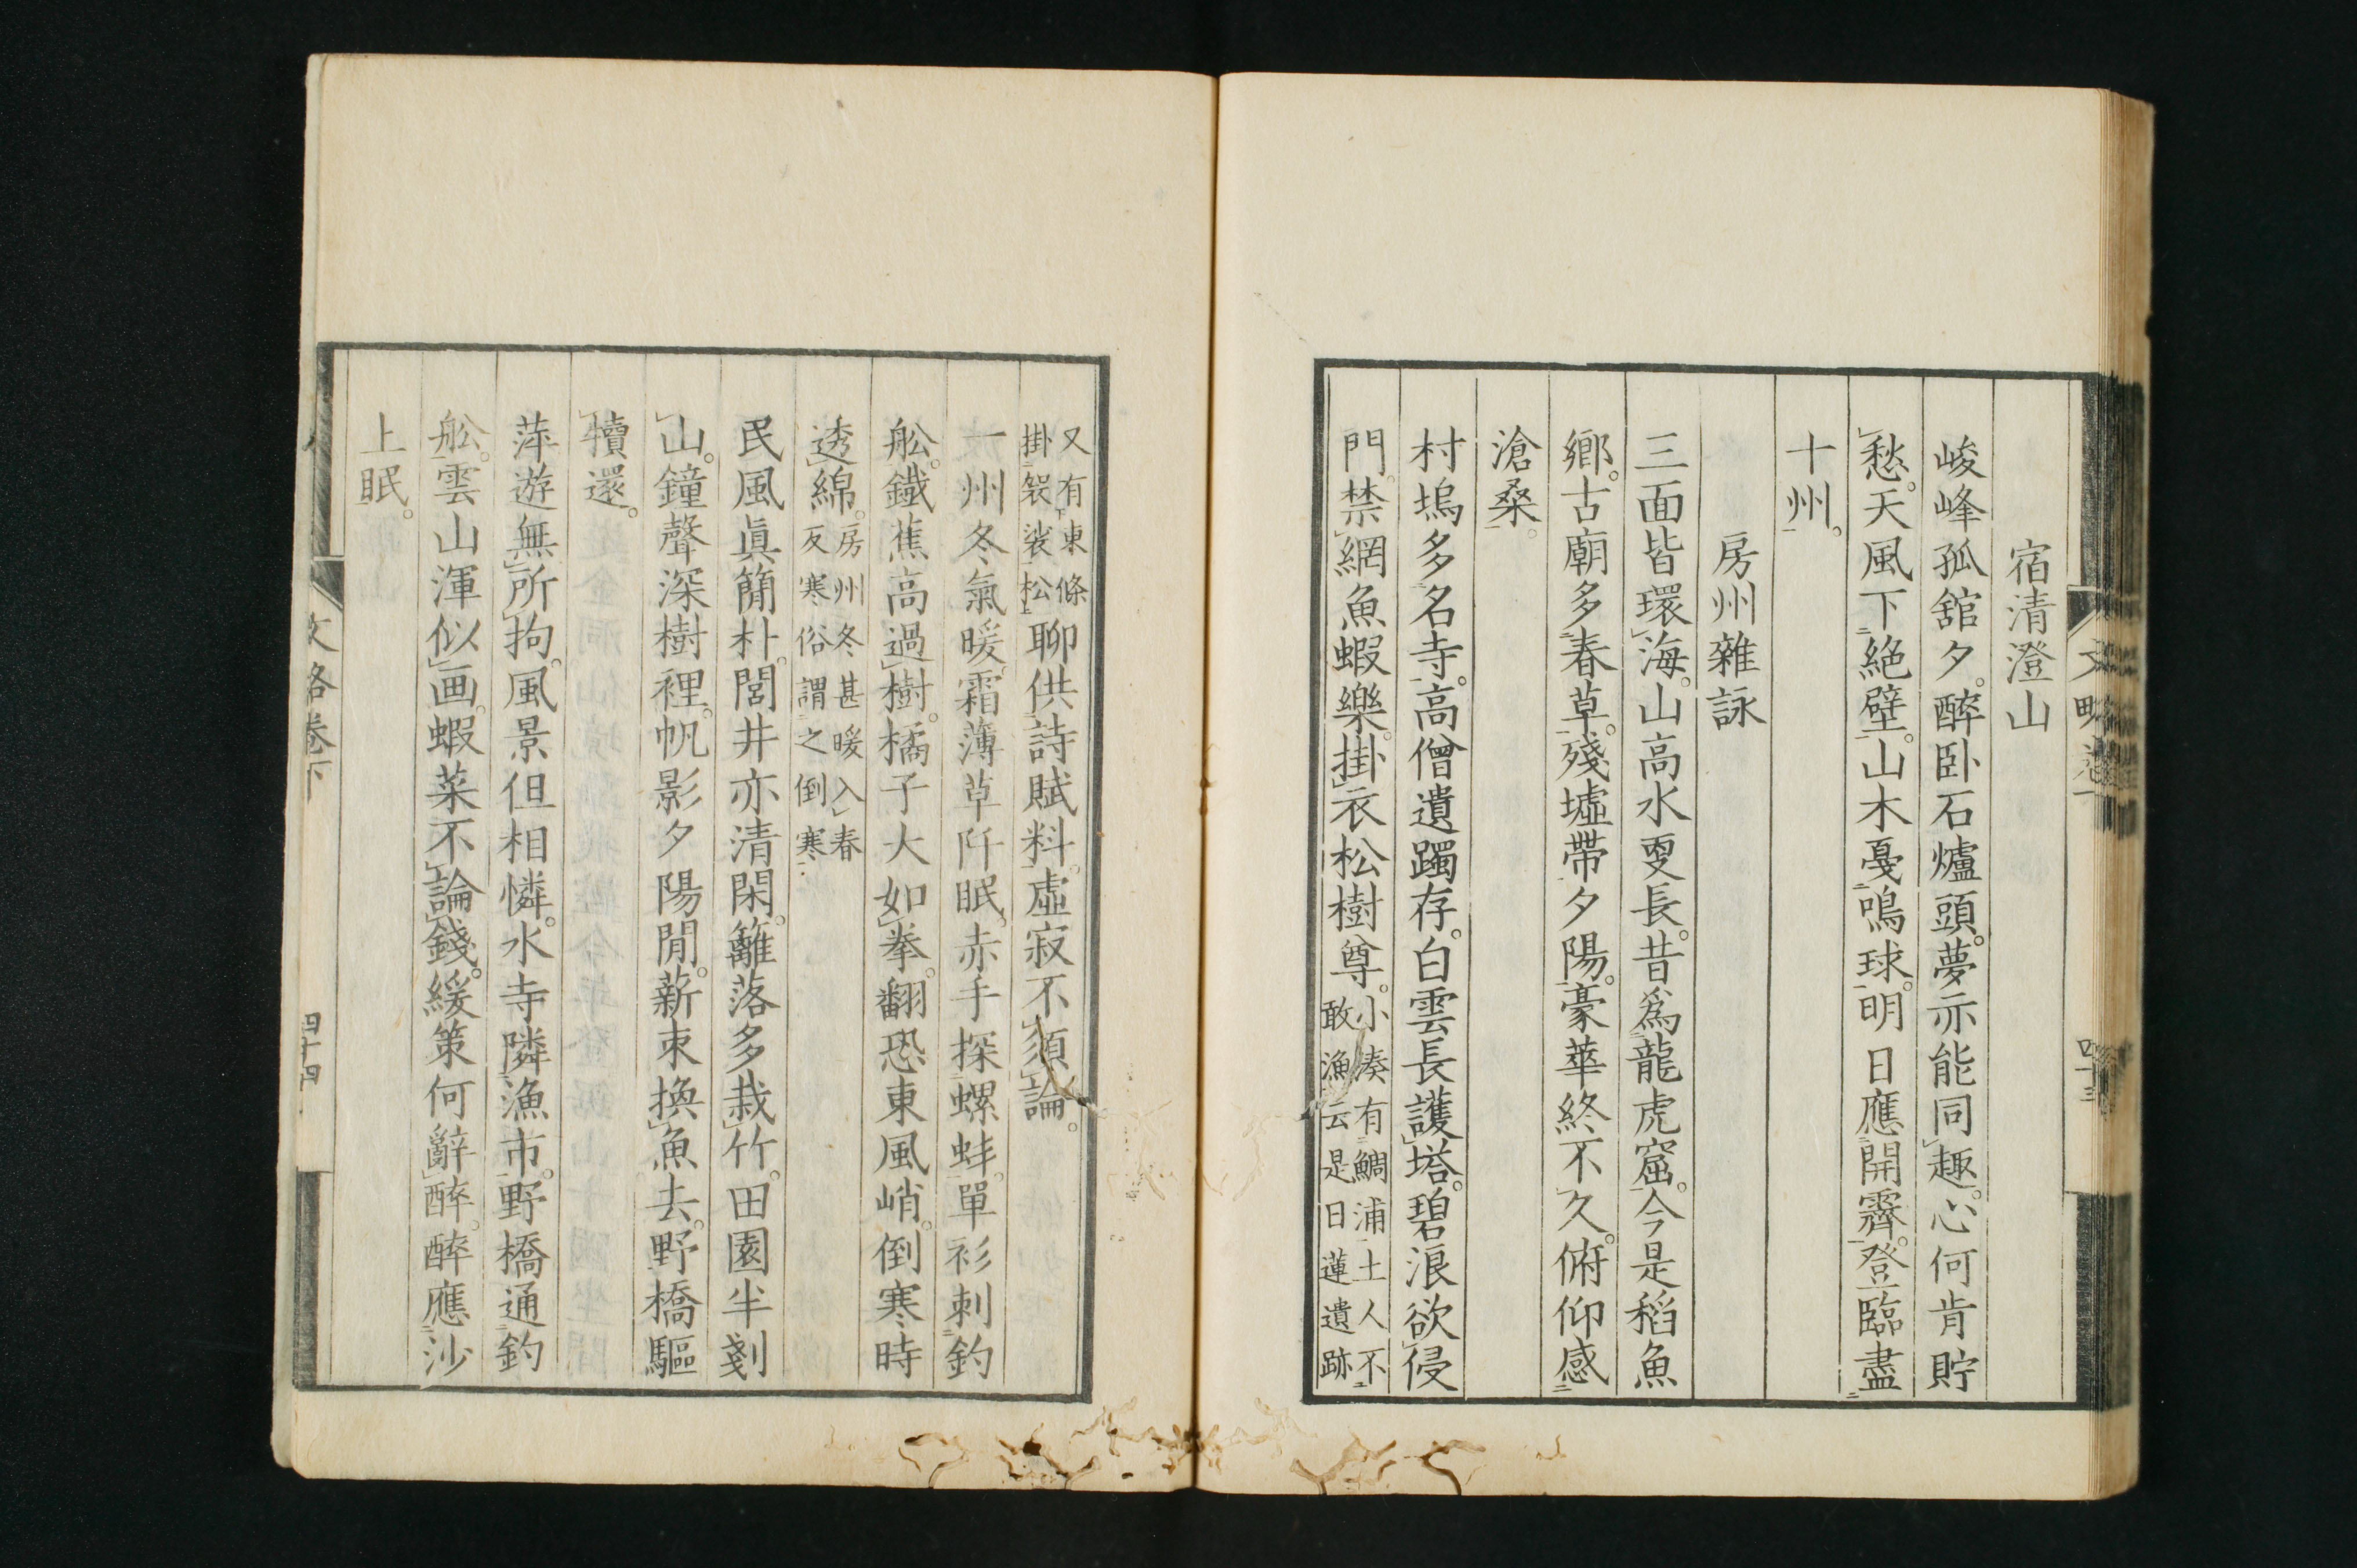 宿清澄山
峻峰孤舘夕。醉卧石爐頭。夢亦能同趣。心何肯貯
愁。天風下絶壁。山木戞鳴球。明日應開霽。登臨盡
十州。
房州雜詠
三面皆環海。山高水更長。昔爲龍虎窟。今是稻魚
鄉。古廟多春草。殘墟帶夕陽。豪華終不久。俯仰感
滄桑。
村塢多名寺。高僧遺躅存。白雲長護塔。碧浪欲侵
門。禁網魚蝦樂。掛衣松樹尊。小湊有鯛浦土人不
敢漁云是日蓮遺跡
又有東條
掛袈裟松聊供詩賦料。虛寂不須論。
一州冬氣暖。霜薄草阡眠。赤手探螺蚌。單衫刺釣
舩。鐵蕉高過樹。橘子大如拳。翻恐東風峭。倒寒時
透綿。房州冬甚暖入春
反寒俗謂之倒寒
民風眞簡朴。閭井亦清閑。籬落多栽竹。田園半剗
山。鐘聲深樹裡。帆影夕陽間。薪束換魚去。野橋驅
犢還。
萍遊無所拘。風景但相憐。水寺隣漁市。野橋通釣
舩。雲山渾似画。蝦菜不論錢。緩策何辭醉。醉應沙
上眠。
文略卷下
四十四